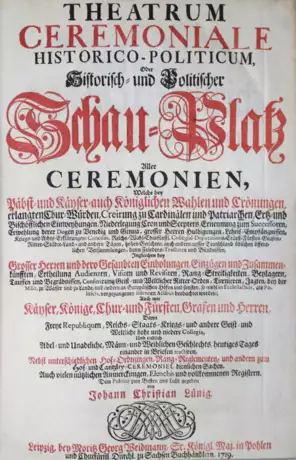 THEATRUM
CEREMONIALE
HISTORICO-POLITICUM,
Oder
Historisch- und Politischer
Schau-Platz
Aller
CEREMONIEN,
Welche bey
Päbst- und Käyser- auch Königlichen Wahlen und Crönungen,
erlangten Chur-Würden, Creirung zu Cardinälen und Patriarchen, Ertz- und
Bischöfflichen Einweyhungen, Niederlegung Cron und Scepters, Ernennung zum Successorn,
Erwehlung derer Dogen zu Venedig und Genua, grosser Herren Huldigungen, Lehns-Empfängnissen,
Ingleichen bey
Grosser Herren und dero Gesandten Einholungen, Einzügen und Zusammen-
künfften, Ertheilung Audientzen, Visiten und Revisiten, Rang-Streitigkeiten, Beylagern,
Tauffen und Begräbnissen, Conferirung Geist- und Weltlicher Ritter-Orden, Turnieren, Jagten, bey der
Auch wie
Käyser, Könige, Chur- und Fürsten, Grafen und Herren,
Dann
Freye Republiquen, Reichs- Staats- Kriegs- und andere Geist- und
Weltliche hohe und niedere Collegia,
Und endlich
Adel- und Unadeliche, Männ- und Weiblichen Geschlechts heutiges Tages
einander in Briefen tractiren.
Nebst unterschiedlichen Hof-Ordnungen, Rang-Reglementen, und andern zum
Hof- und Cantzley-CEREMONIEL dienlichen Sachen.
Auch vielen nützlichen Anmerckungen, Elenchis und vollkommenen Registern.
Johann Christian Lünig.
Leipzig, bey Moritz Georg Weidmann, Sr. Königl. Maj. in Pohlen
und Churfürstl. Durchl. zu Sachsen Buchhändlern. 1719.